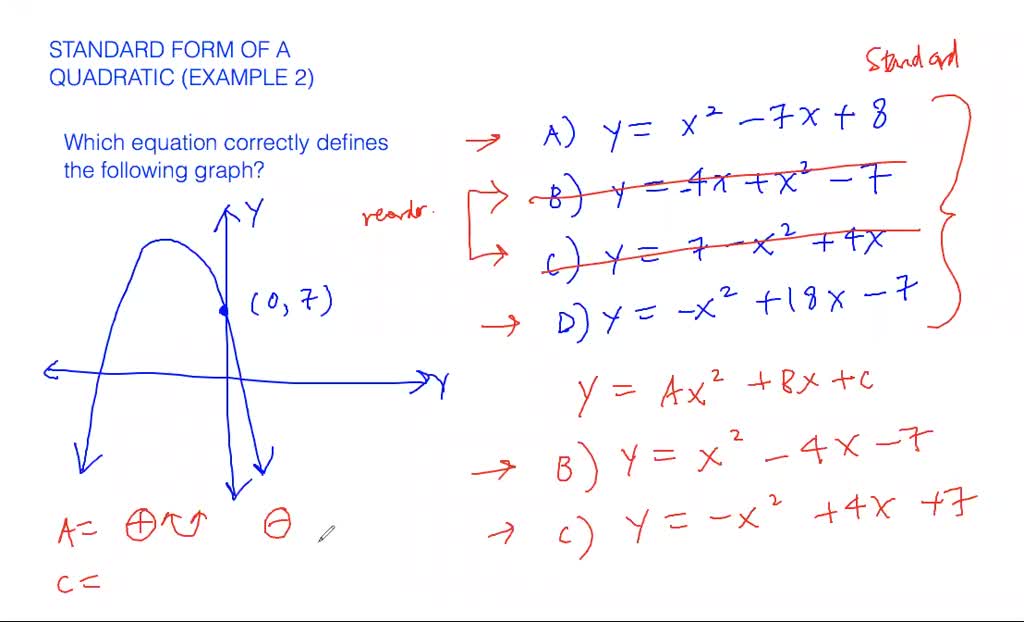 STANDARD FORM OF A
QUADRATIC (EXAMPLE 2)
Which equation correctly defines
the following graph?
Y
(0, 7)
Y
A= ⊕ ⊖
C=
reorder.
Standard
A) y = x² - 7x + 8
B) y = -4x + x² - 7
C) y = 7 - x² + 4x
D) y = -x² + 18x - 7
y = Ax² + Bx + C
B) y = x² - 4x - 7
C) y = -x² + 4x + 7